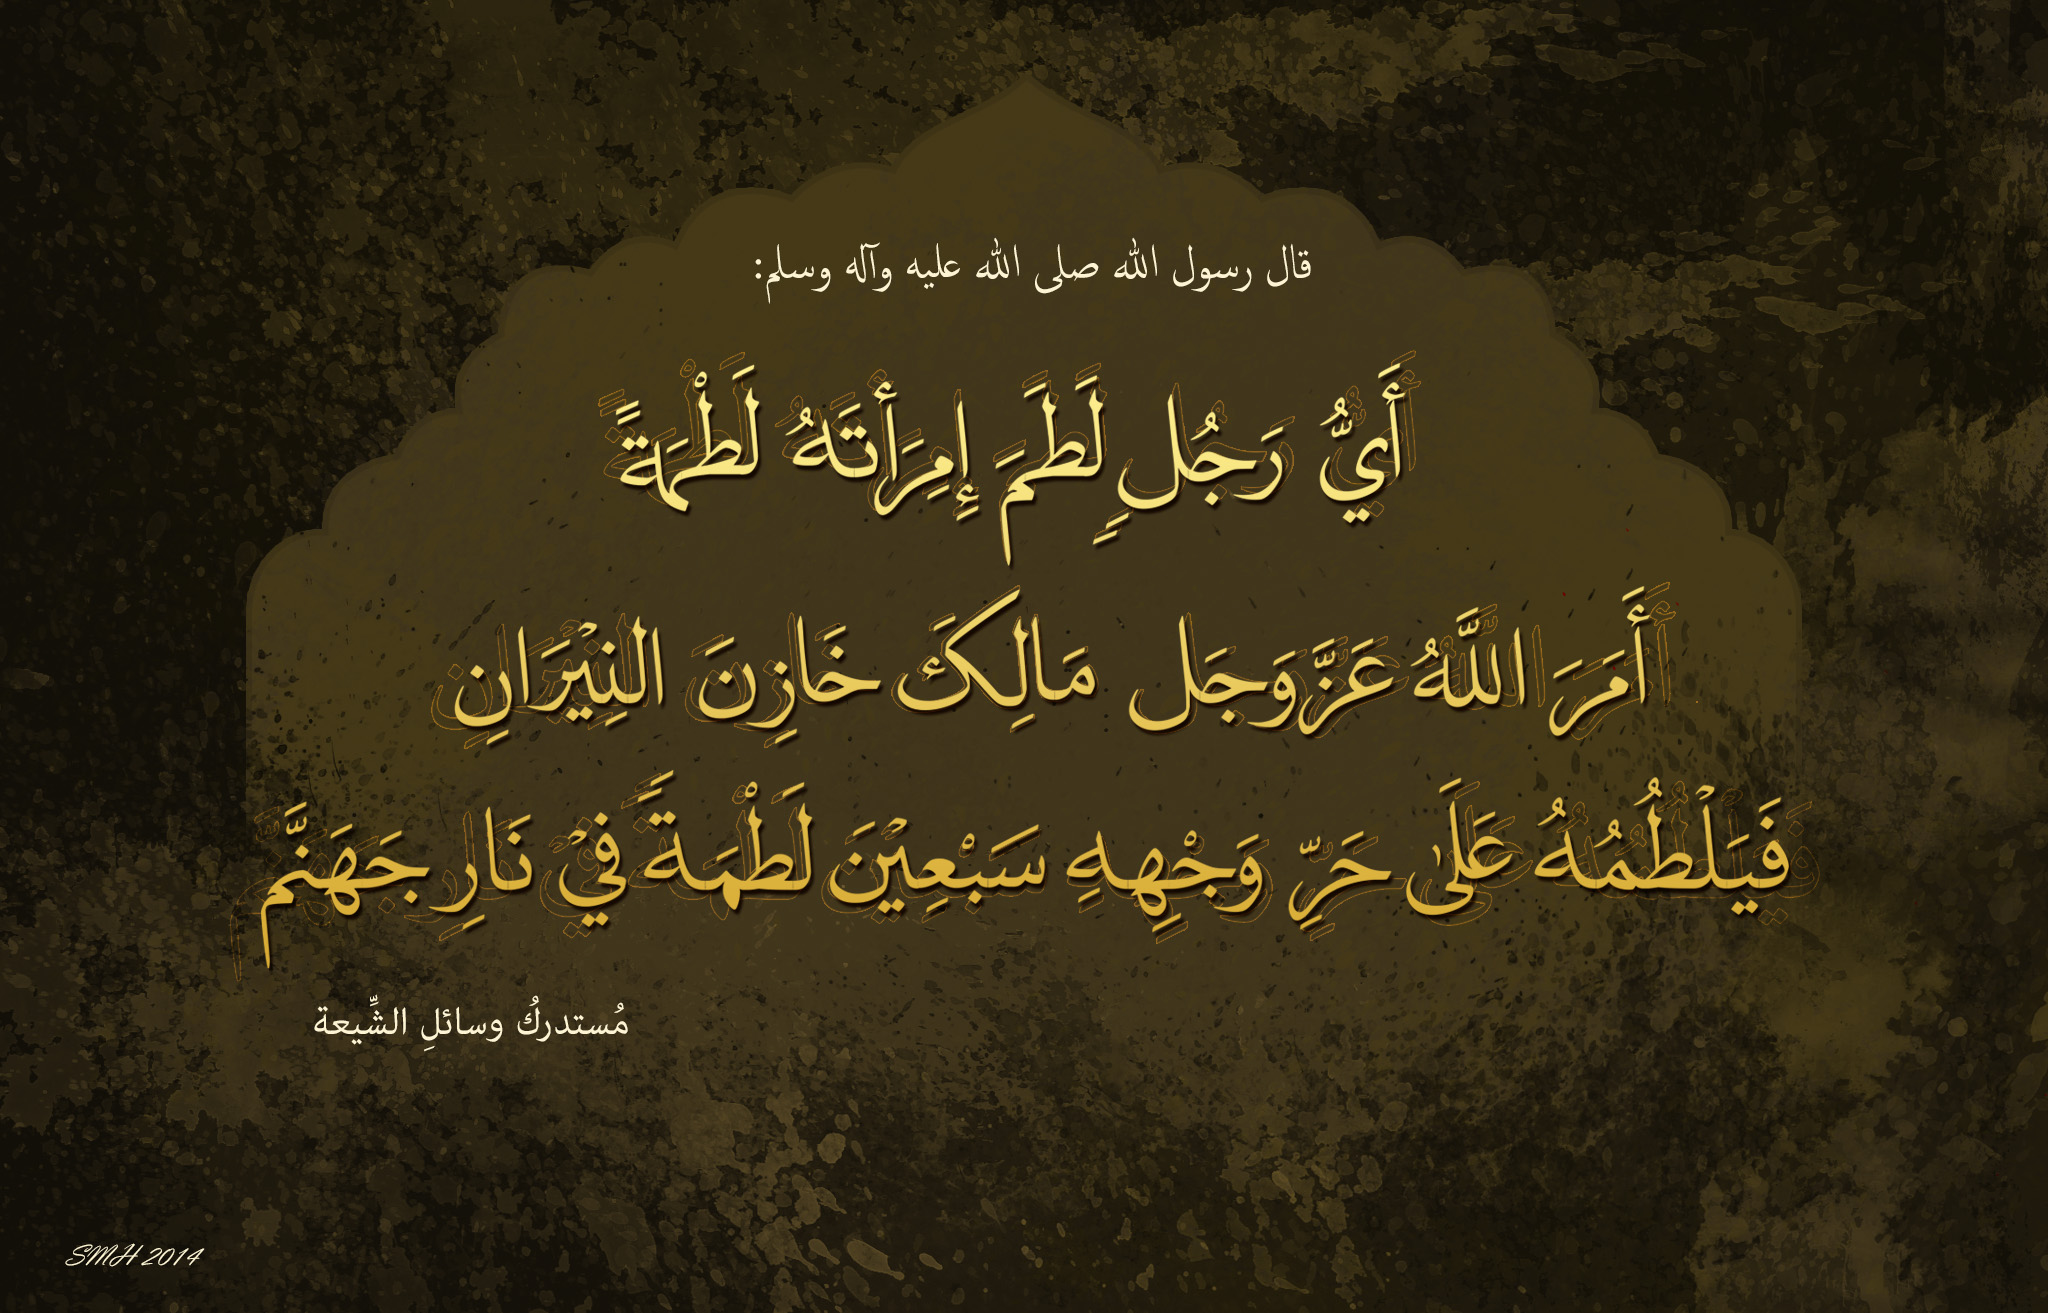 قال رسول الله صلى الله عليه وآله وسلم:
أَيُّ رَجُلٍ لَطَمَ إِمِرَأَتَهُ لَطْمَةً
أَمَرَ اللَّهُ عَزَّوَجَل مَالِكَ خَازِنَ النِيْرَانِ
فَيَلْطُمُهُ عَلَىٰ حَرِّ وَجْهِهِ سَبْعِيْنَ لَطْمَةً فيْ نَارِ جَهَنَّم
مُستدركُ وسائلِ الشِّيعة
SMH 2014